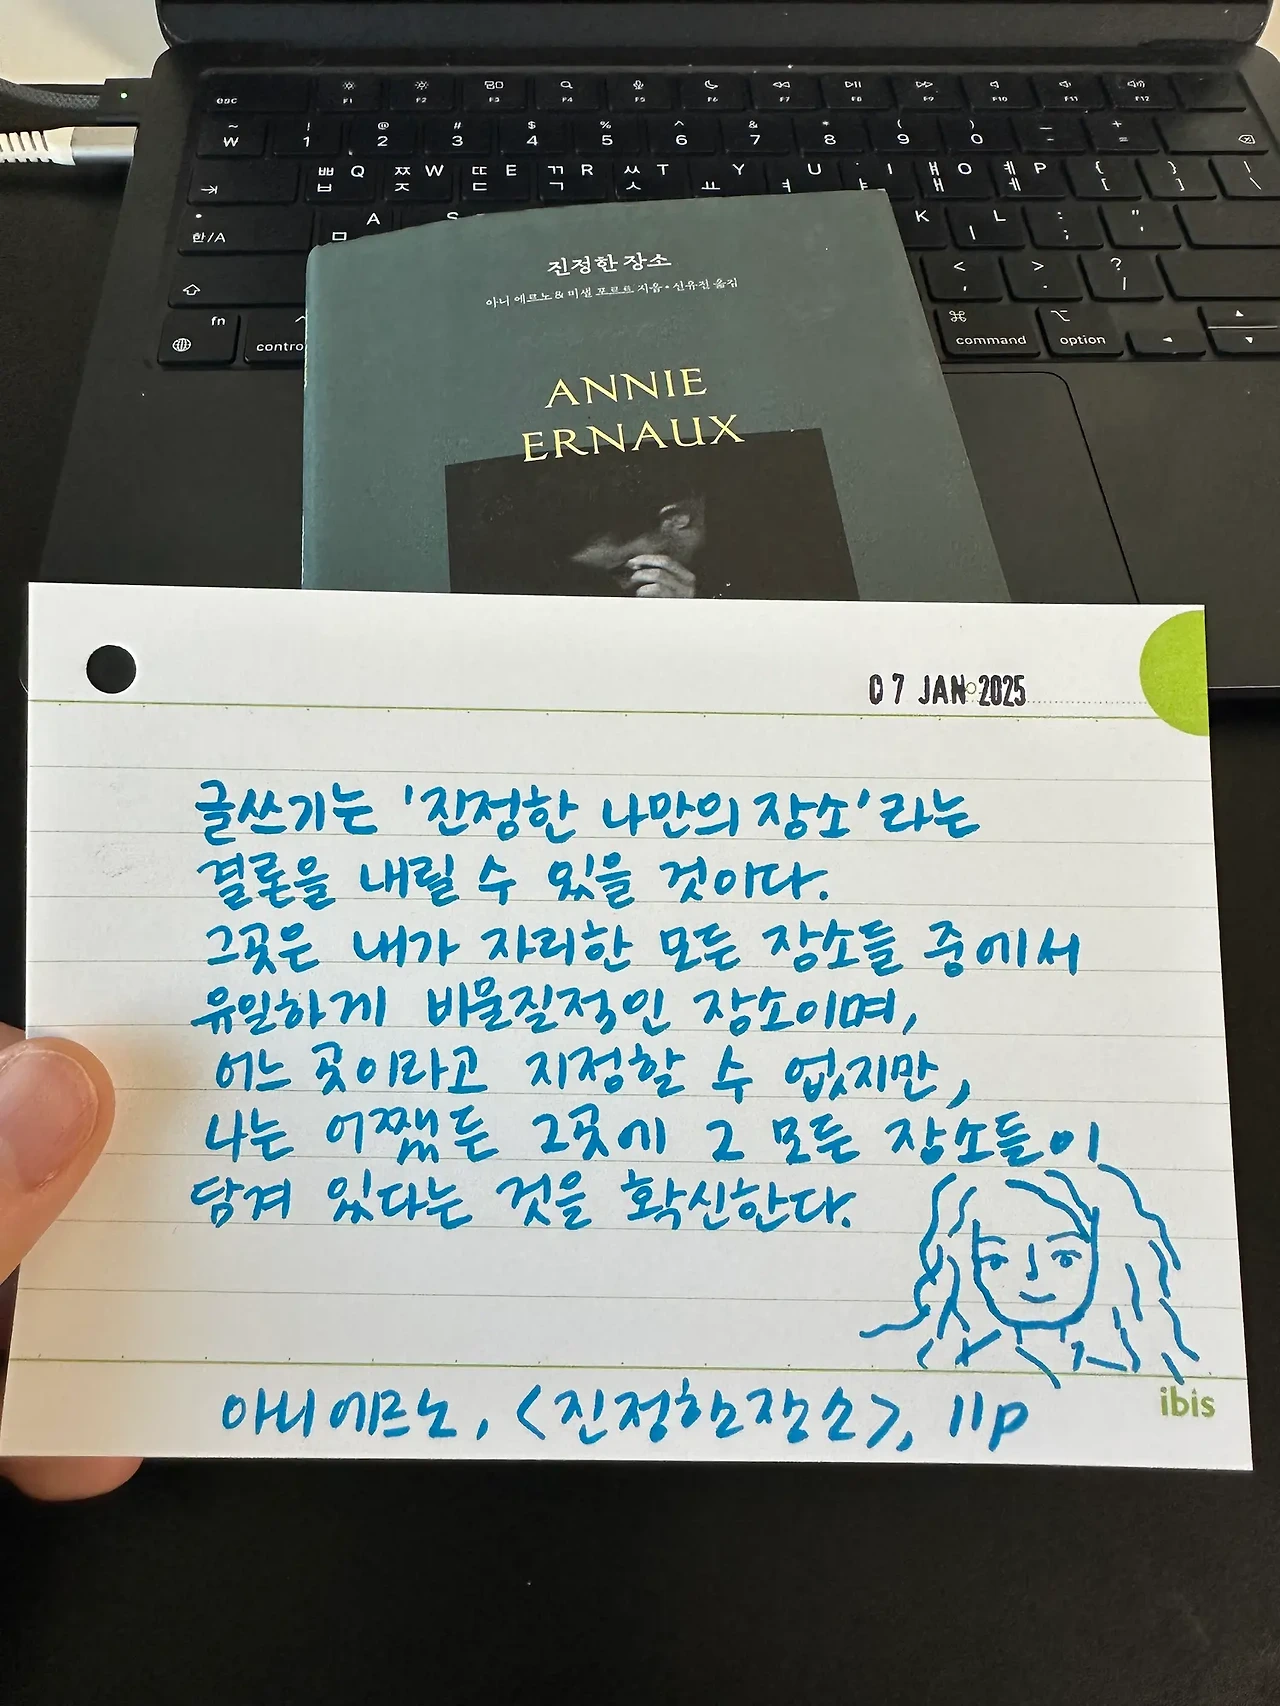 esc F1 F2 F3 F4 F5 F6 F7 F8 F9 F10 F11 F12
~ ₩ ! 1 @ 2 # 3 $ 4 % 5 ^ 6 & 7 * 8 ( 9 ) 0 _ - + =
ㅃ ㅂ Q ㅉ ㅈ W ㄸ ㄷ E ㄲ ㄱ R ㅆ ㅅ T ㅛ Y ㅕ U ㅑ I ㅒ ㅐ O ㅖ ㅔ P { [ } ] | \
한/A ㅁ A S K ㅣ L : ; " '
< , > . ? /
fn contro command option
진정한 장소
아니 에르노 & 미셸 포르트 지음 • 신유진 옮김
ANNIE
ERNAUX
07 JAN 2025
글쓰기는 '진정한 나만의 장소'라는
결론을 내릴 수 있을 것이다.
그곳은 내가 자리한 모든 장소들 중에서
유일하게 비물질적인 장소이며,
어느 곳이라고 지정할 수 없지만,
나는 어쨌든 그곳에 그 모든 장소들이
담겨 있다는 것을 확신한다.
ibis
아니 에르노, <진정한 장소>, 11p